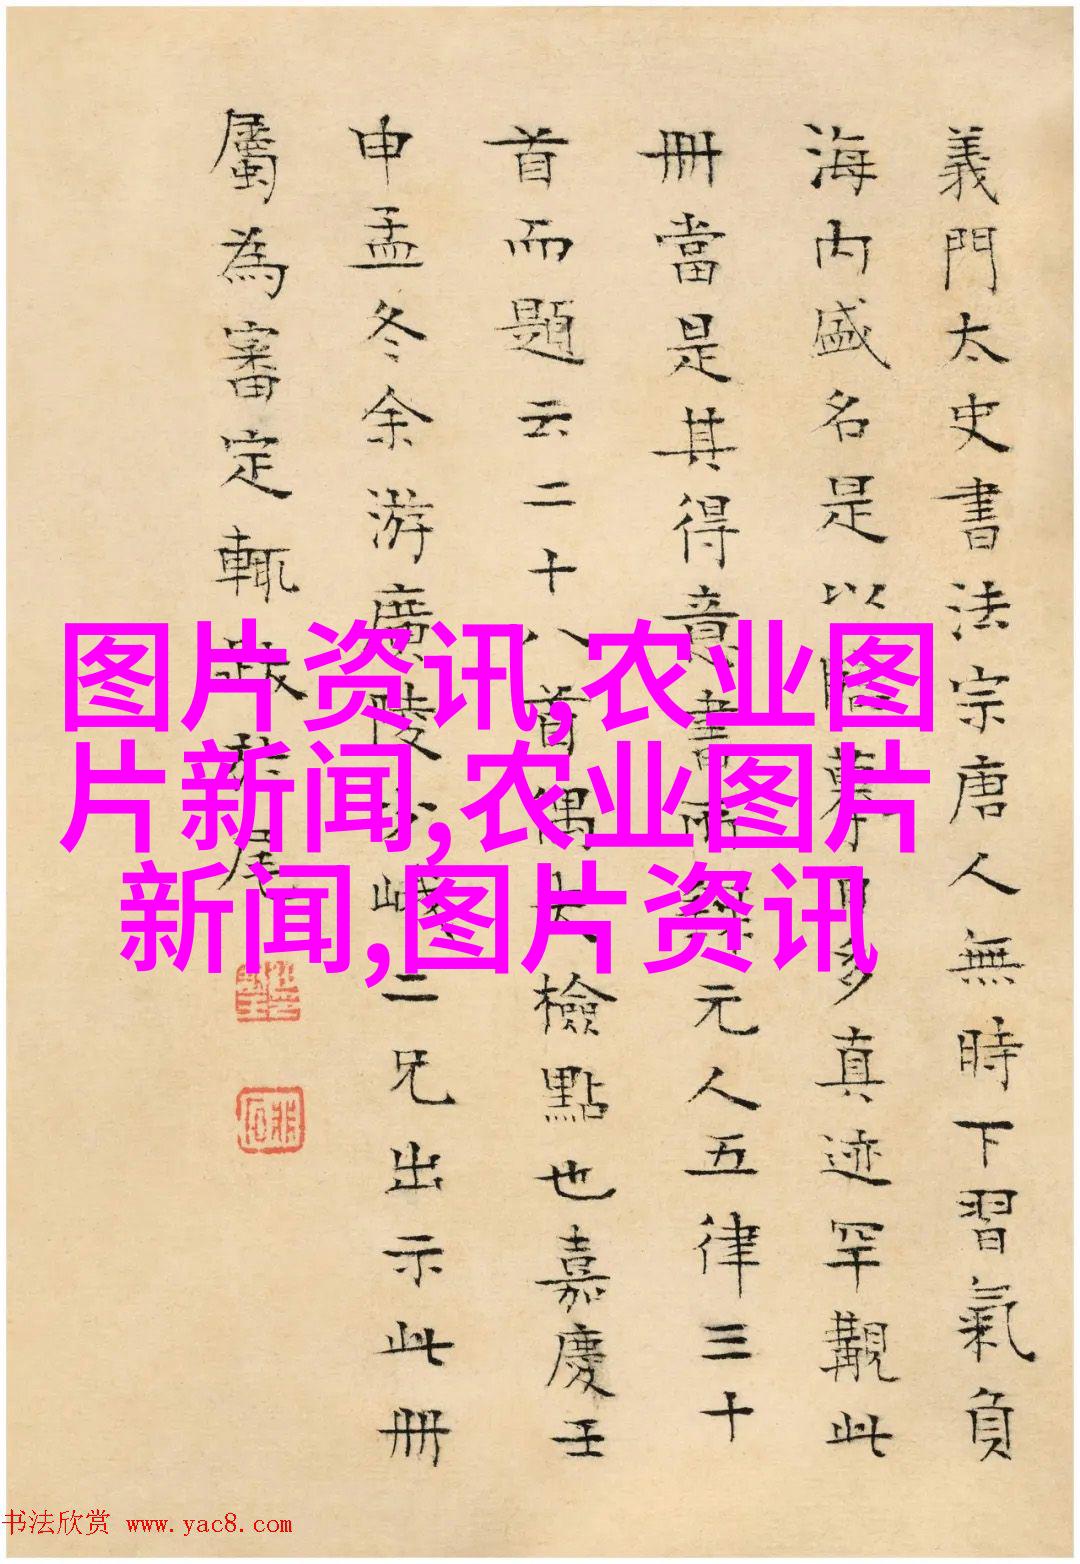 義門太史書法宗唐人無時下習氣負
海内盛名是以臨摹日多真迹罕觀此
冊當是其得意書而錄元人五律三十
首而題云二十八首偶失檢點也嘉慶壬
申孟冬余游廣陵少峨二兄出示此冊
屬為審定輒跋於尾
图片资讯,农业图
片新闻,农业图片
新闻,图片资讯
书法欣赏 www.yac8.com